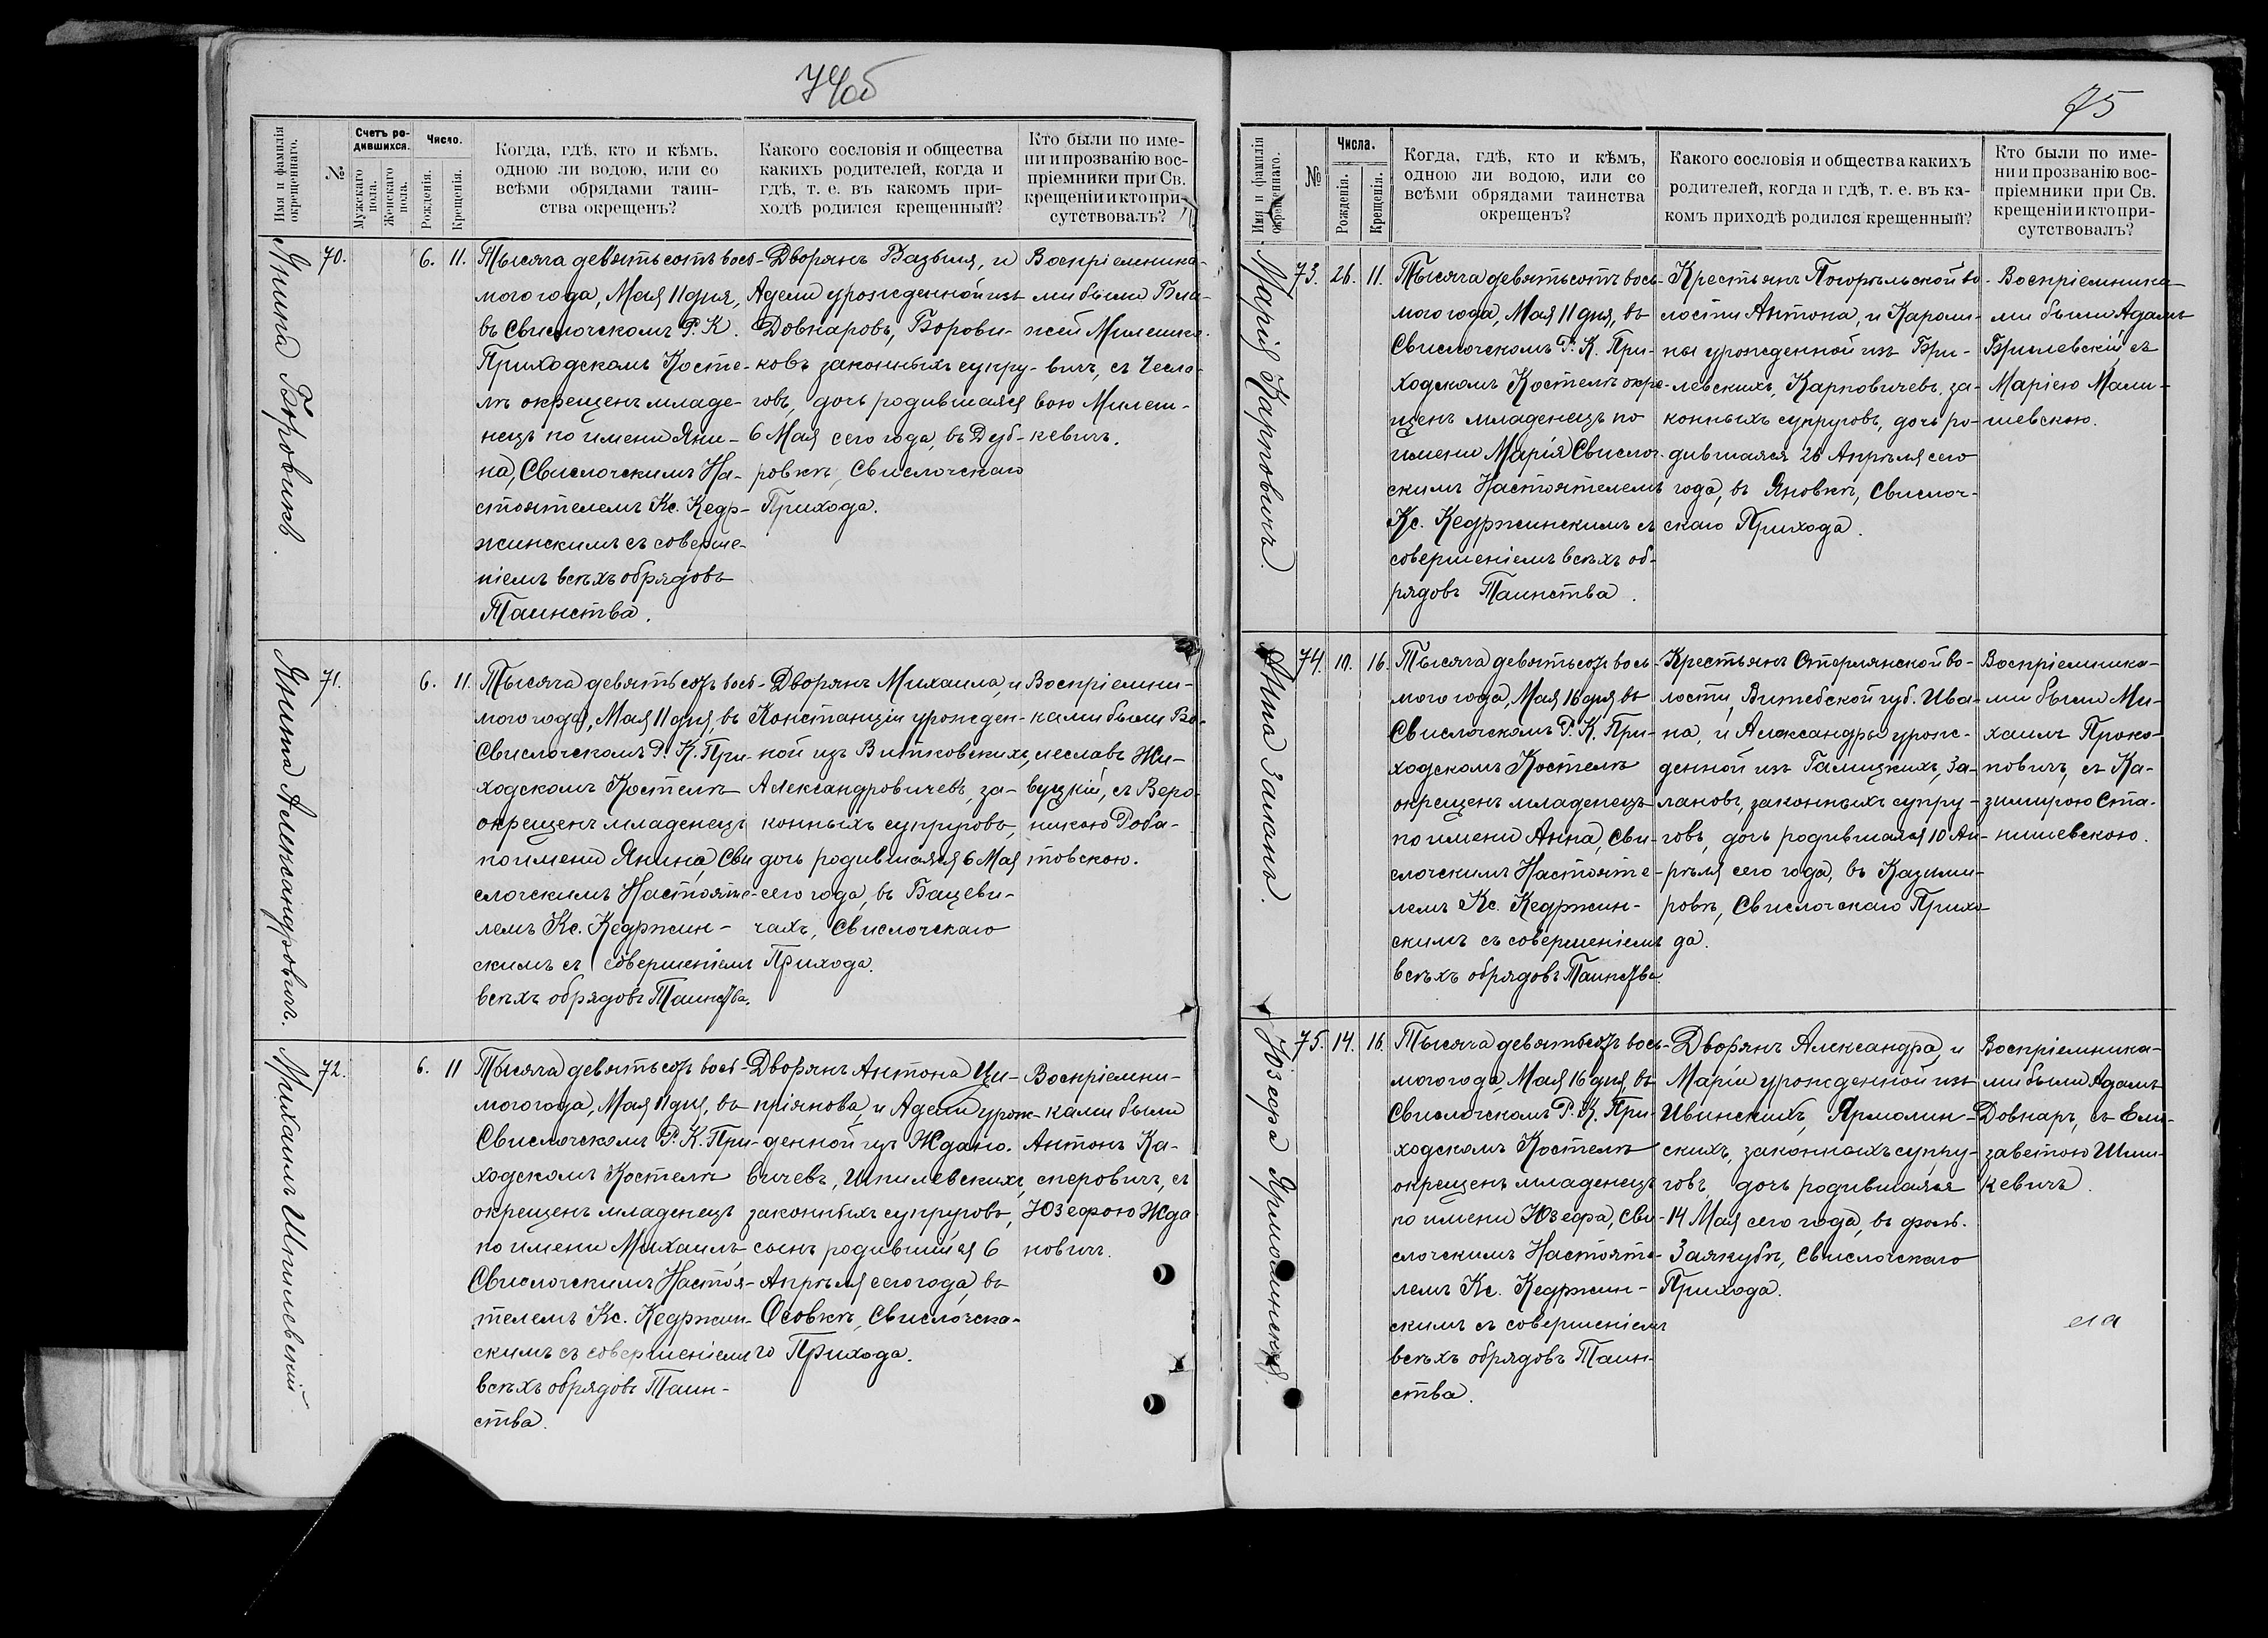 74об
Имя и фамилія окрещеннаго.
№
Счетъ родившихся.
Мужскаго пола.
Женскаго пола.
Число.
Рожденія.
Крещенія.
Когда, гдѣ, кто и кѣмъ,
одною ли водою, или со
всѣми обрядами таин-
ства окрещенъ?
Какого сословія и общества
какихъ родителей, когда и
гдѣ, т. е. въ какомъ при-
ходѣ родился крещенный?
Кто были по име-
ни и прозванію вос-
пріемники при Св.
крещеніи и кто при-
сутствовалъ?
Янина Боровикъ.
70.
6.
11.
Тысяча девятьсотъ вось-
мого года, Мая 11 дня,
въ Свислочскомъ Р. К.
Приходскомъ Косте-
лѣ окрещенъ младе-
нецъ по имени Яни-
на, Свислочскимъ На-
стоятелемъ Кс. Кедр-
жинскимъ съ соверше-
ніемъ всѣхъ обрядовъ
Таинства.
Дворянъ Базыля, и
Адели урожденной изъ
Довнаровъ, Борови-
ковъ законныхъ супру-
говъ, дочь родившаяся
6 Мая сего года, въ Дуб-
ровкѣ, Свислочскаго
Прихода.
Воспріемника-
ми были Бла-
жей Милешке-
вичъ, съ Чесла-
вою Милеш-
кевичъ.
Янина Александровичъ.
71.
6.
11.
Тысяча девятьсотъ вось-
мого года, Мая 11 дня, въ
Свислочскомъ Р. К. При-
ходскомъ Костелѣ
окрещенъ младенецъ
по имени Янина, Сви
слочскимъ Настояте-
лемъ Кс. Кедржин-
скимъ съ совершеніемъ
всѣхъ обрядовъ Таинства.
Дворянъ Михаила, и
Констанціи урожден-
ной изъ Витковскихъ,
Александровичевъ, за-
конныхъ супруговъ,
дочь родившаяся 6 Мая
сего года, въ Бацеви-
чахъ, Свислочскаго
Прихода.
Воспріемни-
ками были Бо-
леславъ Жи-
вуцкій, съ Веро-
никою Доба-
товскою.
Михаилъ Шпилевскій.
72.
6.
11
Тысяча девятьсотъ вось-
мого года, Мая 11 дня, въ
Свислочскомъ Р. К. При-
ходскомъ Костелѣ
окрещенъ младенецъ
по имени Михаилъ
Свислочскимъ Настоя-
телемъ Кс. Кедржин-
скимъ съ совершеніемъ
всѣхъ обрядовъ Таин-
ства.
Дворянъ Антона Ци-
пріянова, и Адели урож-
денной изъ Ждано-
вичевъ, Шпилевскихъ,
законныхъ супруговъ,
сынъ родившійся 6
Апрѣля сего года, въ
Осовкѣ, Свислочска-
го Прихода.
Воспріемни-
ками были
Антонъ Ка-
сперовичъ, съ
Юзефою Жда
новичъ.
75
Имя и фамилія окрещеннаго.
№
Числа.
Рожденія.
Крещенія.
Когда, гдѣ, кто и кѣмъ,
одною ли водою, или со
всѣми обрядами таинства
окрещенъ?
Какого сословія и общества какихъ
родителей, когда и гдѣ, т. е. въ ка-
комъ приходѣ родился крещенный?
Кто были по име-
ни и прозванію вос-
пріемники при Св.
крещеніи и кто при-
сутствовалъ?
Марія Карповичъ.
73.
26.
11.
Тысяча девятьсотъ вось-
мого года, Мая 11 дня, въ
Свислочскомъ Р. К. При-
ходскомъ Костелѣ окре-
щенъ младенецъ по
имени Марія Свислоч-
скимъ Настоятелемъ
Кс. Кедржинскимъ съ
совершеніемъ всѣхъ об-
рядовъ Таинства.
Крестьянъ Погорѣльской во-
лости Антона, и Кароли-
ны урожденной изъ Бри-
левскихъ, Карповичевъ, за-
конныхъ супруговъ, дочь ро-
дившаяся 26 Апрѣля сего
года, въ Яновкѣ, Свислоч-
скаго Прихода.
Воспріемника-
ми были Адамъ
Брилевскій съ
Маріею Мали-
шевскою.
Анна Заланъ.
74.
10.
16.
Тысяча девятьсотъ вось-
мого года, Мая 16 дня въ
Свислочскомъ Р. К. При-
ходскомъ Костелѣ
окрещенъ младенецъ
по имени Анна, Сви-
слочскимъ Настояте-
лемъ Кс. Кедржин-
скимъ съ совершеніемъ
всѣхъ обрядовъ Таинства.
Крестьянъ Стерлянской во-
лости, Витебской губ. Ива-
на, и Александры урож-
денной изъ Галицкихъ, За-
лановъ, законныхъ супру-
говъ, дочь родившаяся 10 Ап-
рѣля сего года, въ Казими-
ровѣ, Свислочскаго Прихо-
да.
Воспріемника-
ми были Ми-
хаилъ Проко-
повичъ, съ Ка-
зимирою Ста-
нишевскою.
Юзефа Ярмолинская.
75.
14.
16.
Тысяча девятьсотъ вось-
мого года, Мая 16 дня, въ
Свислочскомъ Р. К. При-
ходскомъ Костелѣ
окрещенъ младенецъ
по имени Юзефа, Сви-
слочскимъ Настояте-
лемъ Кс. Кедржин-
скимъ съ совершеніемъ
всѣхъ обрядовъ Таин-
ства.
Дворянъ Александра, и
Маріи урожденной изъ
Ивинскихъ, Ярмолин-
скихъ, законныхъ супру-
говъ, дочь родившаяся
14 Мая сего года, въ фольв.
Заякубѣ, Свислочскаго
Прихода.
Воспріемника-
ми были Адамъ
Довнаръ, съ Ели-
заветою Шим-
кевичъ.